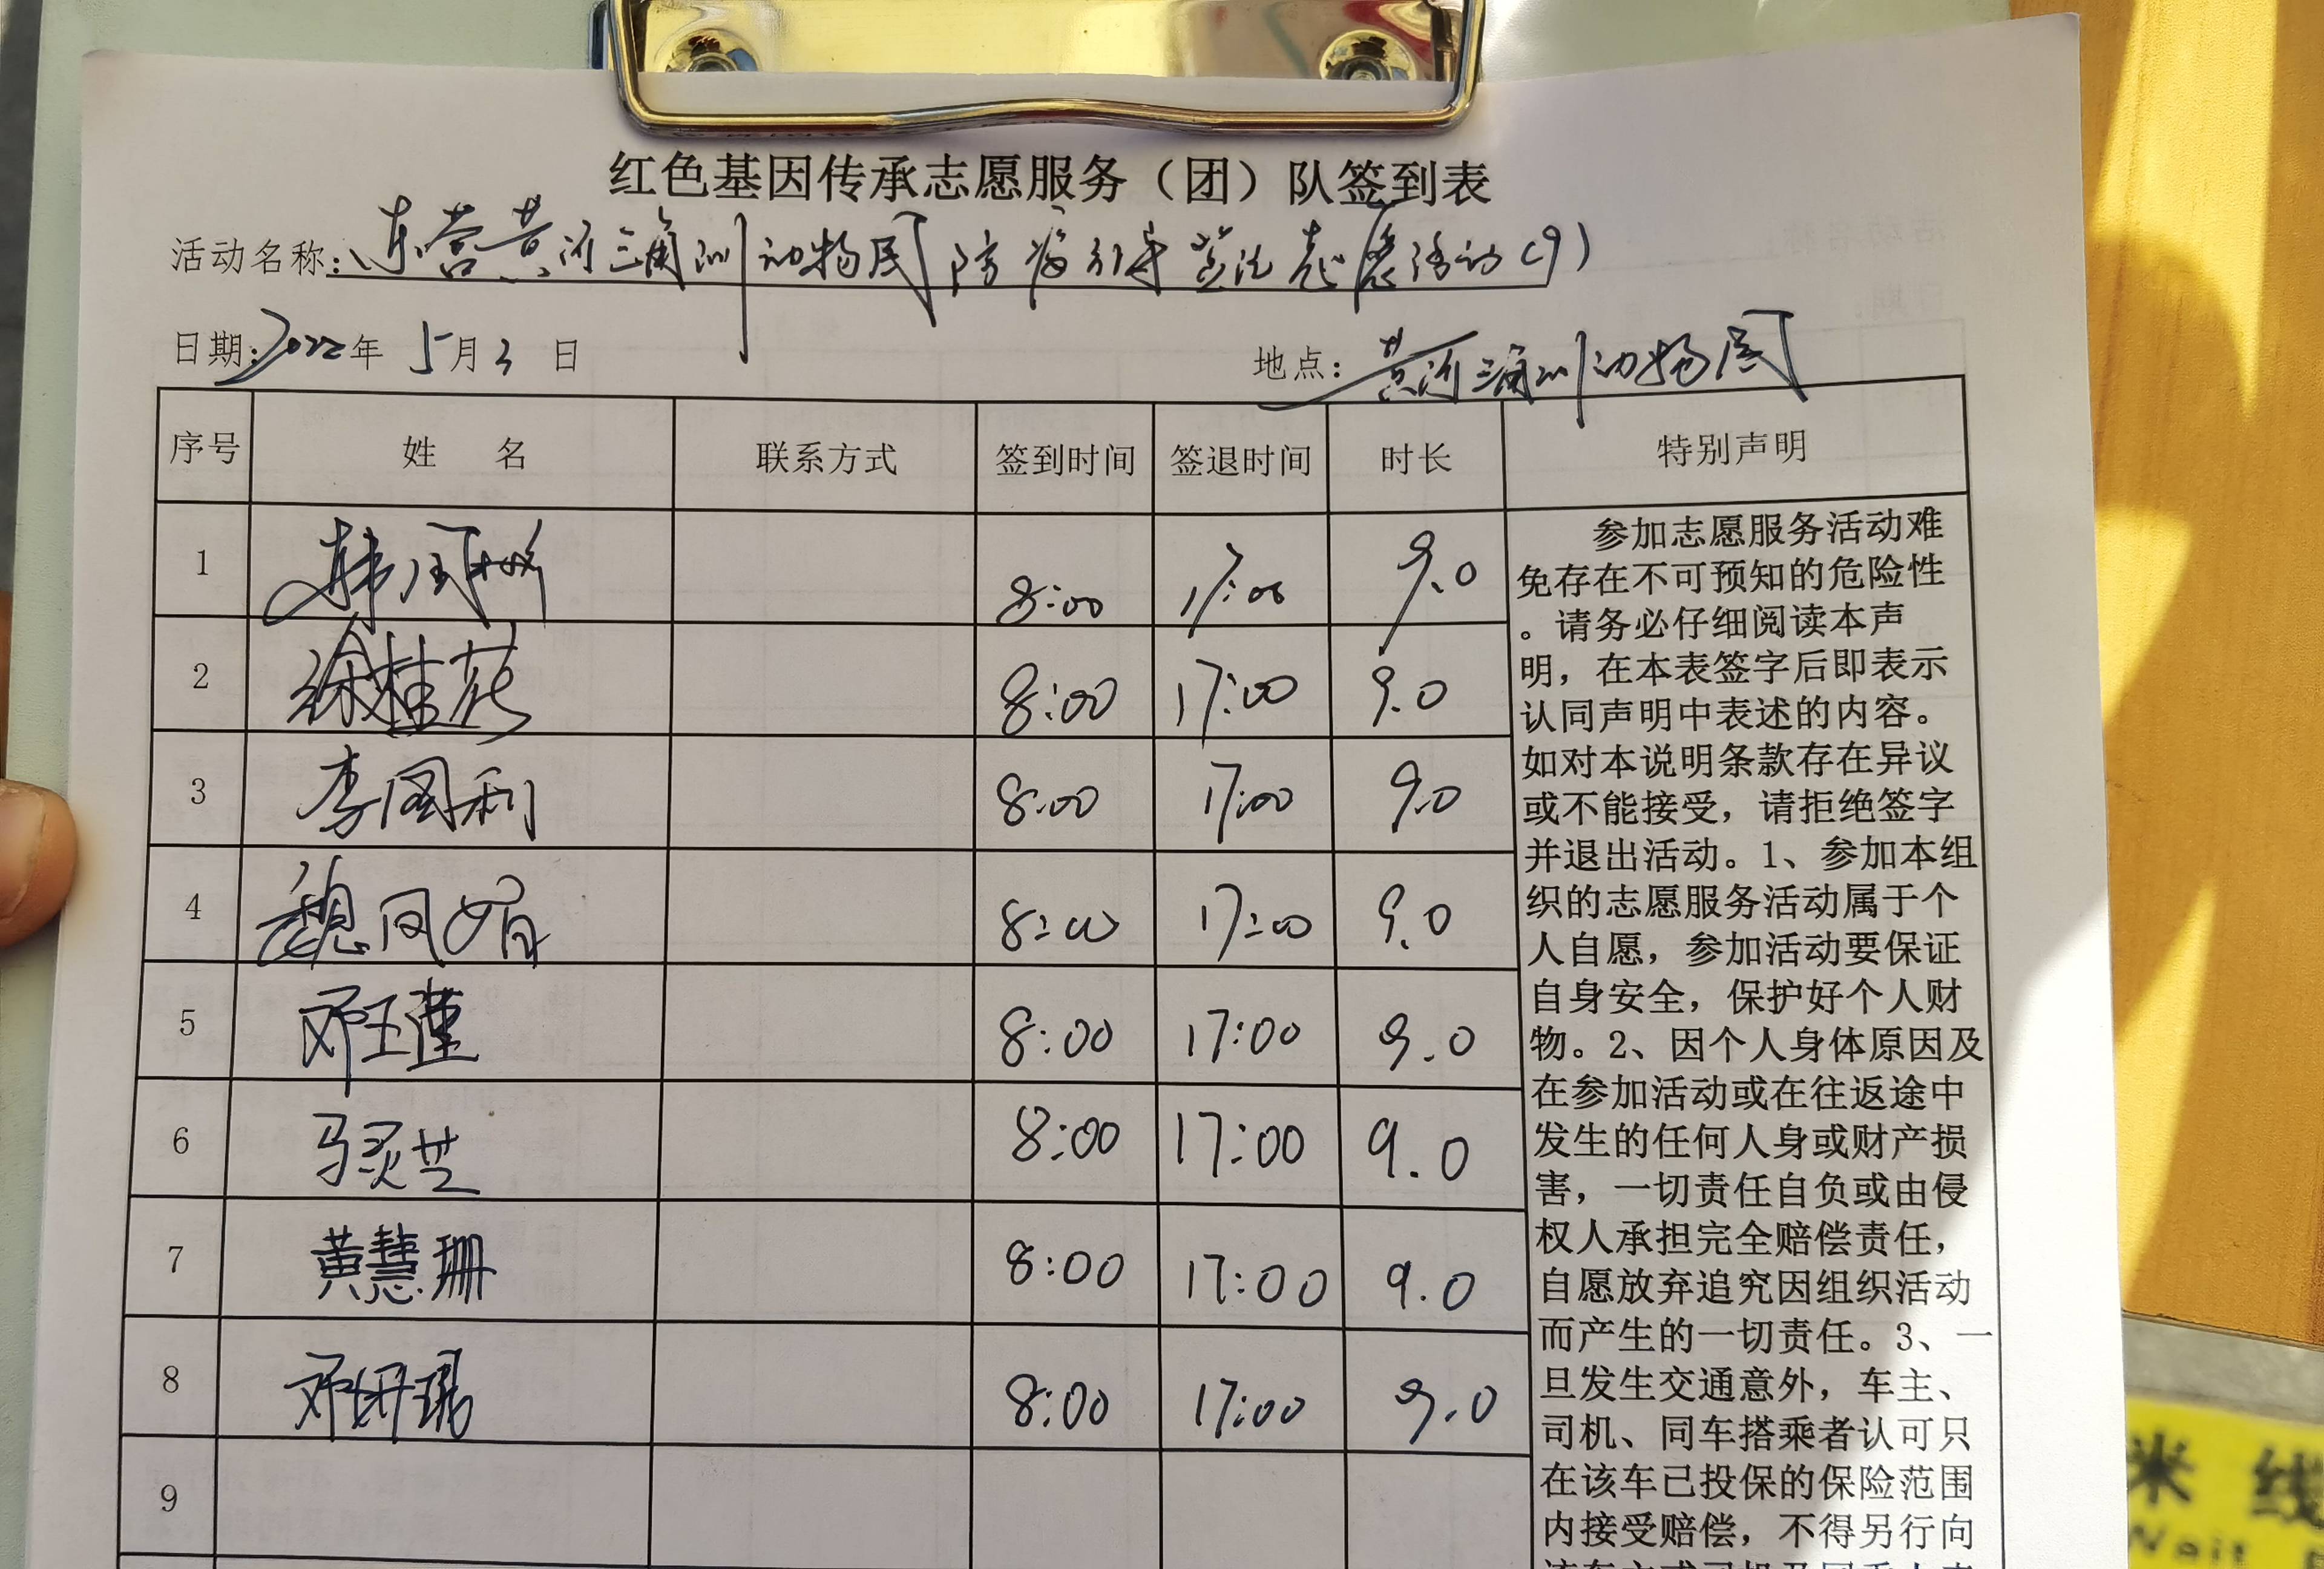 红色基因传承志愿服务（团）队签到表
活动名称：东营黄河三角洲动物园防疫引导 志愿活动(9)
日期：2022年 5月3日 地点：黄河三角洲动物园
序号 姓 名 联系方式 签到时间 签退时间 时长 特别声明
1 韩国 8:00 17:00 9.0
2 徐桂花 8:00 17:00 9.0
3 李国利 8:00 17:00 9.0
4 魏凤娟 8:00 17:00 9.0
5 邓玉莲 8:00 17:00 9.0
6 马灵芝 8:00 17:00 9.0
7 黄慧珊 8:00 17:00 9.0
8 邓 8:00 17:00 9.0
9
参加志愿服务活动难
免存在不可预知的危险性
。请务必仔细阅读本声
明，在本表签字后即表示
认同声明中表述的内容。
如对本说明条款存在异议
或不能接受，请拒绝签字
并退出活动。1、参加本组
织的志愿服务活动属于个
人自愿，参加活动要保证
自身安全，保护好个人财
物。2、因个人身体原因及
在参加活动或在往返途中
发生的任何人身或财产损
害，一切责任自负或由侵
权人承担完全赔偿责任，
自愿放弃追究因组织活动
而产生的一切责任。3、一
旦发生交通意外，车主、
司机、同车搭乘者认可只
在该车已投保的保险范围
内接受赔偿，不得另行向
米线
Wait